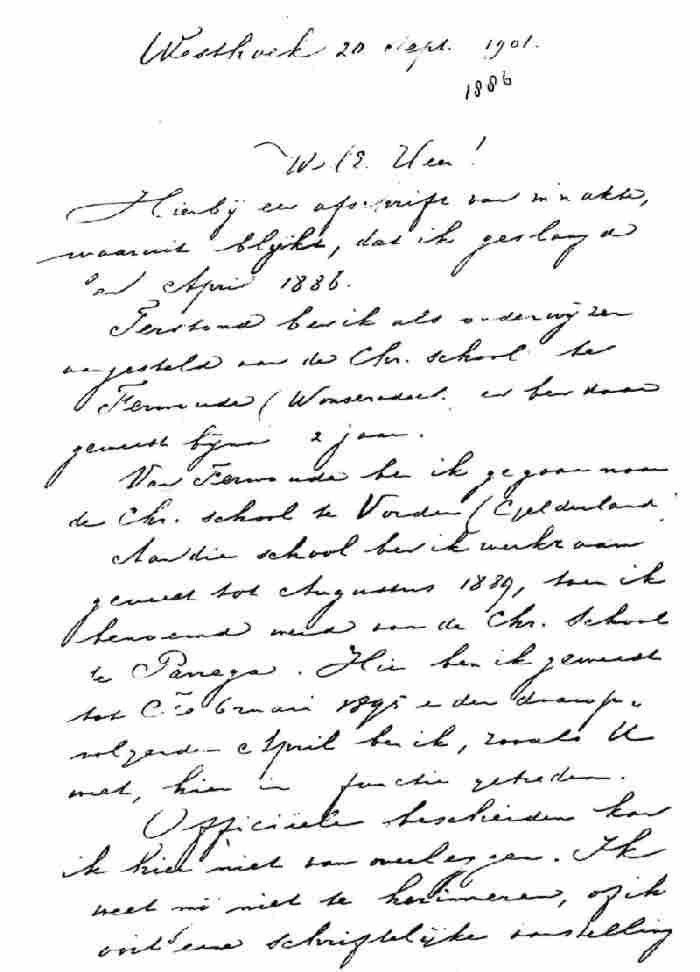 Westhoek 20 Sept. 1901.
1886
WelE. Heer!
Hierbij een afschrift van m'n akte,
waaruit blijkt, dat ik geslaagd
ben April 1886.
Terstond ben ik als onderwijzer
aangesteld aan de Chr. school te
Ferwoude (Wonseradeel. en ben daar
geweest bijna 2 jaar.
Van Ferwoude ben ik gegaan naar
de Chr. school te Vorden (Gelderland.
Aan die school ben ik werkzaam
geweest tot Augustus 1889, toen ik
benoemd werd aan de Chr. School
te Parrega. Hier ben ik geweest
tot Februari 1895 en den daarop
volgenden April ben ik, zooals U
weet, hier in functie getreden.
Officiëele bescheiden kan
ik hier niet van overleggen. Ik
weet mij niet te herinneren, of ik
ooit eene schriftelijke aanstelling